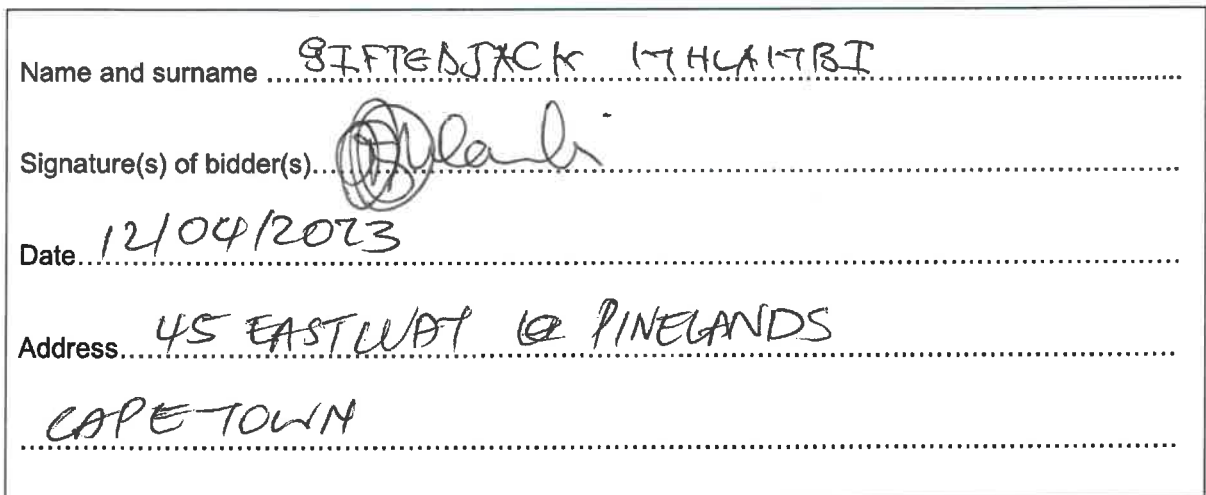 Name and surname GIFTEDJACK MHLAMBI
Signature(s) of bidder(s)
Date 12/04/2023
Address 45 EASTWAY PINELANDS
CAPE TOWN